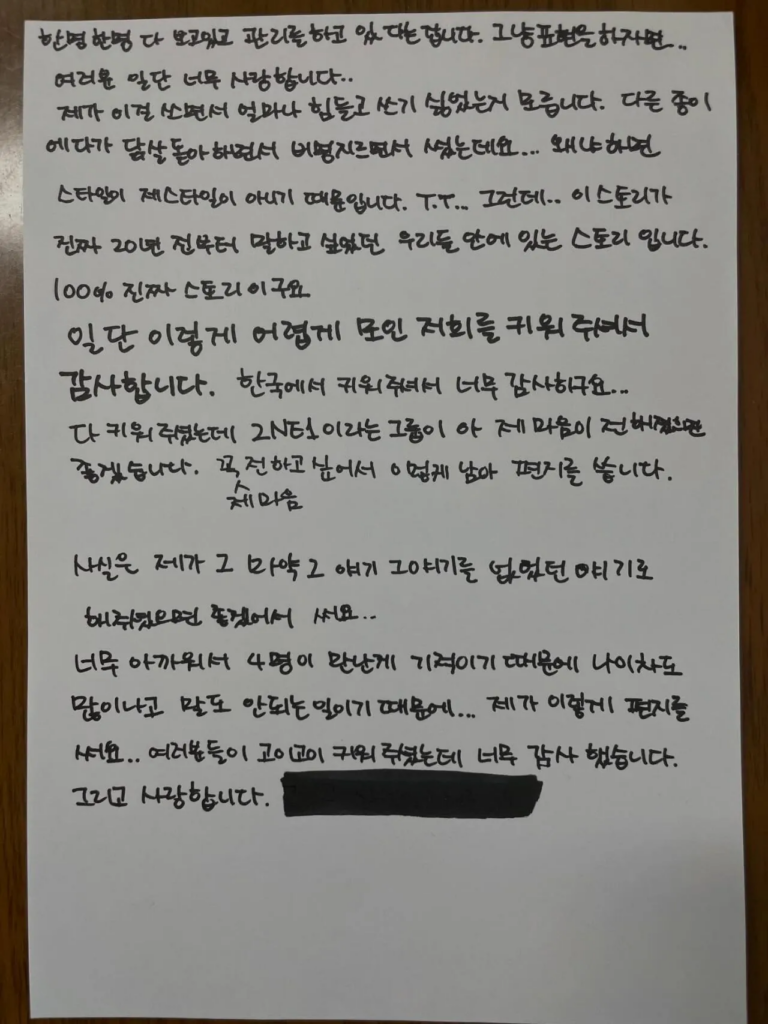 한명한명 다 보고있고 관리를 하고 있다는 겁니다. 그냥 표현을 하자면...
여러분 일단 너무 사랑합니다..
제가 이걸 쓰면서 얼마나 힘들고 쓰기 싫었는지 모릅니다. 다른 종이
에다가 닭살 돋아 하면서 비명지르면서 썼는데요... 왜냐하면
스타일이 제스타일이 아니기 때문입니다. T.T... 그런데.. 이 스토리가
진짜 20년 전부터 말하고 싶었던 우리들 안에 있는 스토리 입니다.
100% 진짜 스토리 이구요
일단 이렇게 어렵게 모인 저희를 키워 주셔서
감사합니다. 한국에서 키워주셔서 너무 감사하구요...
다 키워 주셨는데 2NE1이라는 그룹이 아 제 마음이 전해졌으면
좋겠습니다. 꼭 전하고 싶어서 이렇게 남아 편지를 씁니다.
제 마음
사실은 제가 그 마약 그 얘기 그 얘기를 없었던 얘기로
해주셨으면 좋겠어서 써요...
너무 아까워서 4명이 만난게 기적이기 때문에 나이차도
많이나고 말도 안되는 일이기 때문에... 제가 이렇게 편지를
써요.. 여러분들이 고이고이 키워 주셨는데 너무 감사 했습니다.
그리고 사랑합니다.